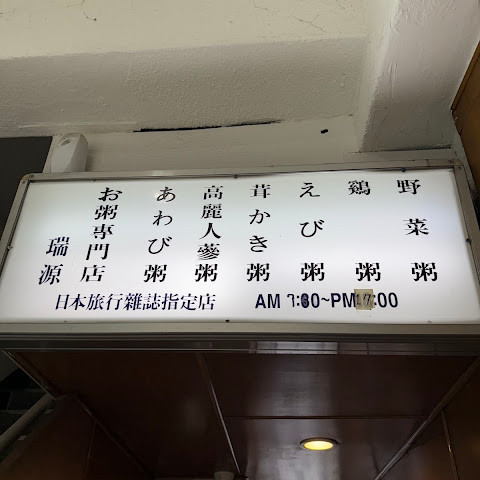 野菜粥
鷄粥
えび粥
茸かき粥
高麗人蔘粥
あわび粥
お粥專門店
瑞源
日本旅行雜誌指定店 AM 7:30~PM17:00